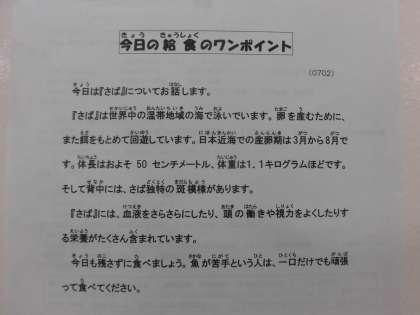 今日の給食のワンポイント
(0702)
今日は『さば』についてお話します。
『さば』は世界中の温帯地域の海で泳いでいます。卵を産むために、
また餌をもとめて回遊しています。日本近海での産卵期は3月から8月で
す。体長はおよそ 50 センチメートル、体重は1.1キログラムほどです。
そして背中には、さば独特の斑模様があります。
『さば』には、血液をさらさらにしたり、頭の働きや視力をよくしたりす
る栄養がたくさん含まれています。
今日も残さずに食べましょう。魚が苦手という人は、一口だけでも頑張
って食べてください。